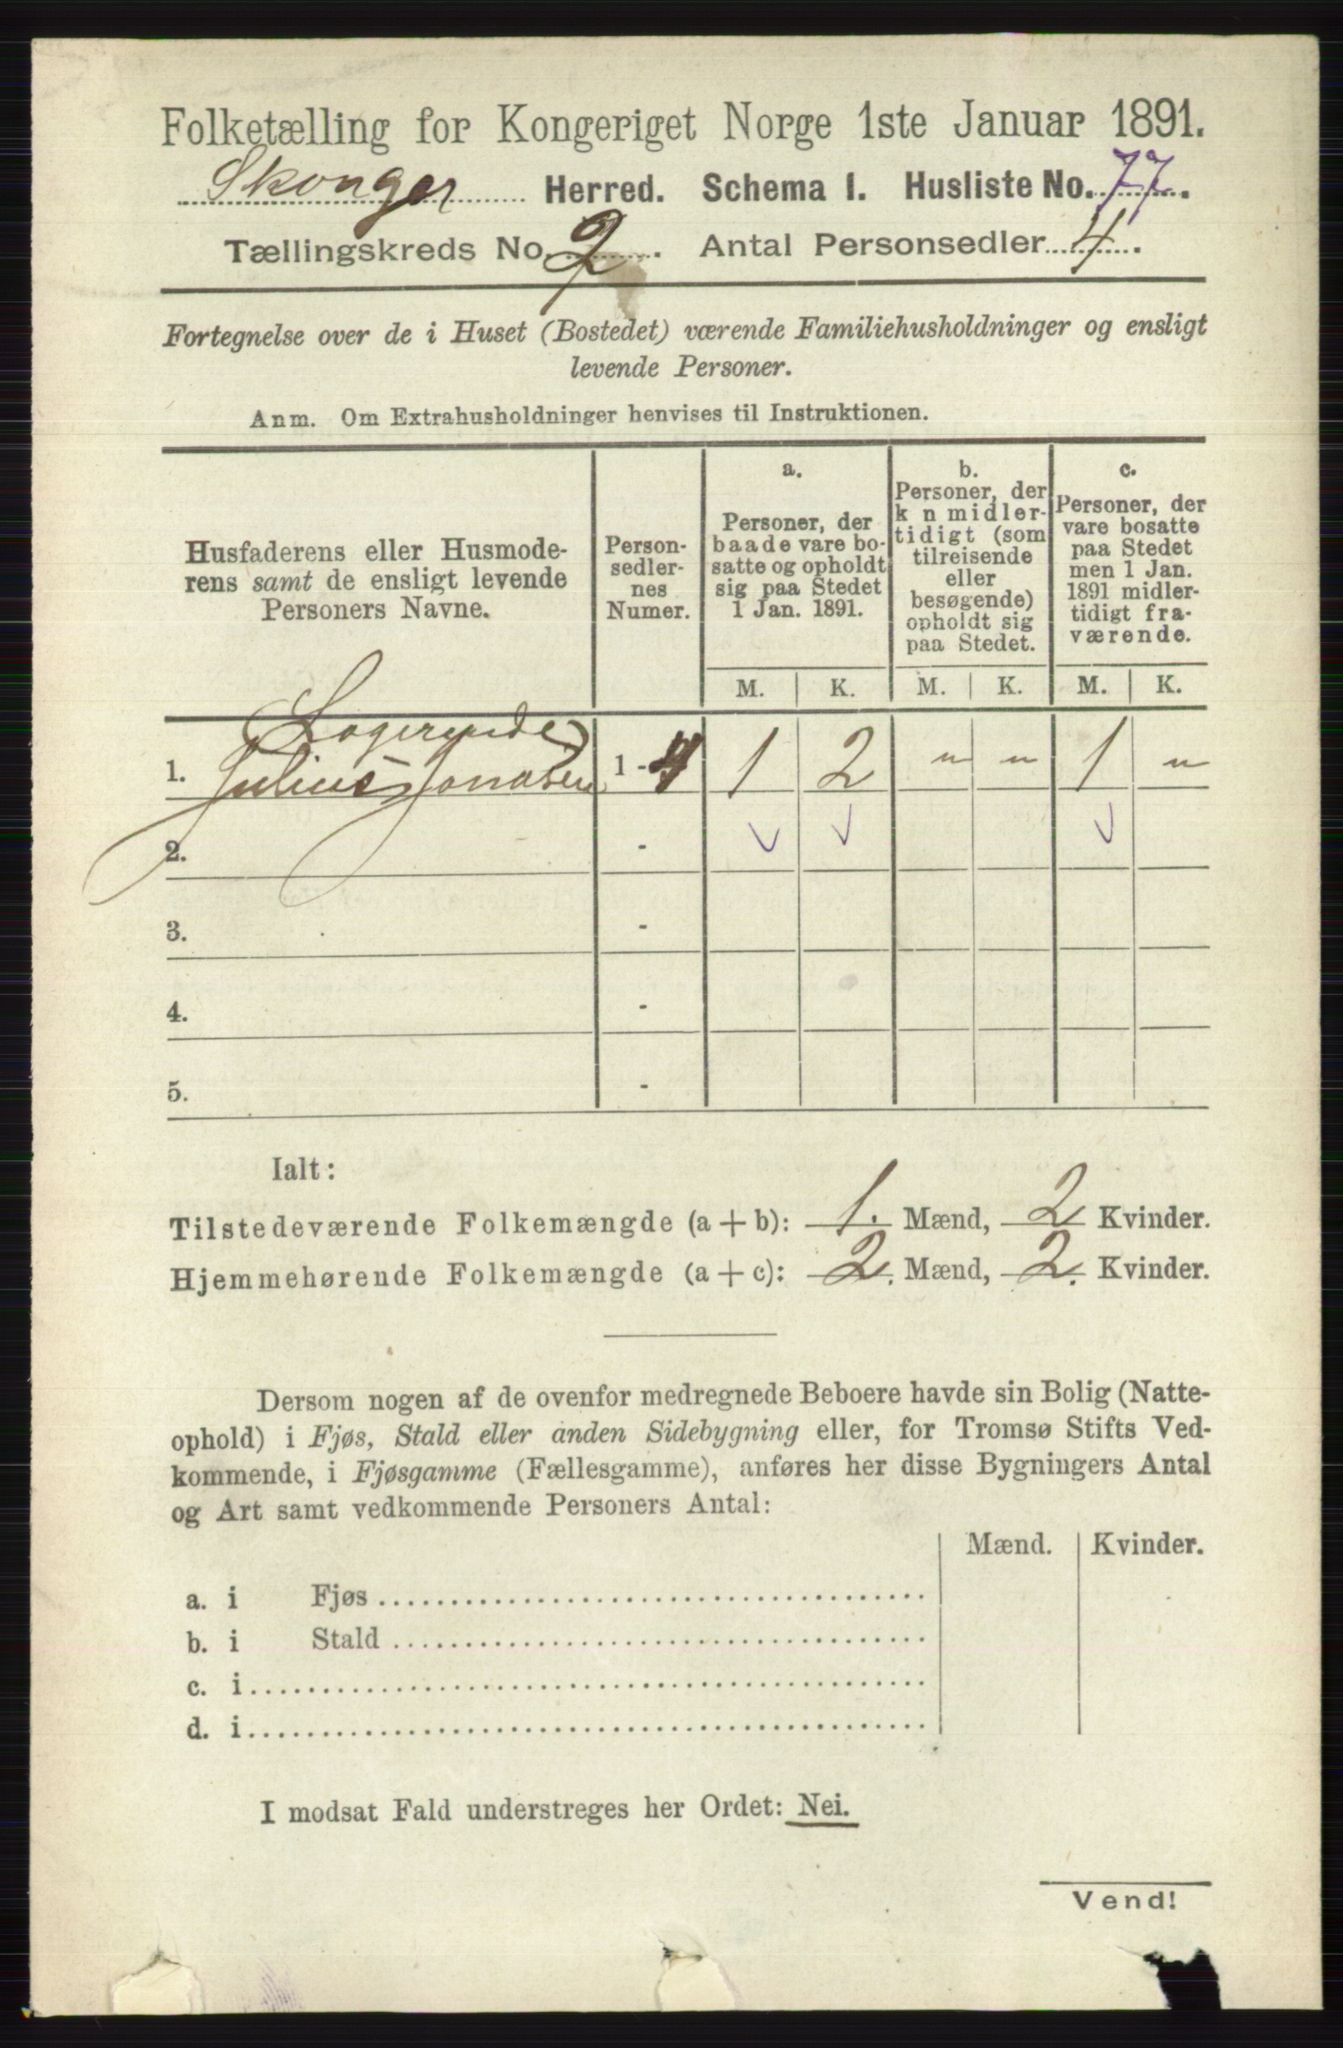 Folketælling for Kongeriget Norge 1ste Januar 1891.
Skonger Herred. Schema I. Husliste No. 77.
Tællingskreds No. 2. Antal Personsedler 4.
Fortegnelse over de i Huset (Bostedet) værende Familiehusholdninger og ensligt
levende Personer.
Anm. Om Extrahusholdninger henvises til Instruktionen.
Husfaderens eller Husmode-
rens samt de ensligt levende
Personers Navne.
Person-
sedler-
nes
Numer.
a.
Personer, der
baade vare bo-
satte og opholdt
sig paa Stedet
1 Jan. 1891.
b.
Personer, der
k n midler-
tidigt (som
tilreisende
eller
besøgende)
opholdt sig
paa Stedet.
c.
Personer, der
vare bosatte
paa Stedet
men 1 Jan.
1891 midler-
tidigt fra-
værende.
M. K. M. K. M. K.
(Logerende)
1. Julius Jonasen 1 - 4 1 2 " " 1 "
2. -
3. -
4. -
5. -
Ialt:
Tilstedeværende Folkemængde (a+b): 1. Mænd, 2 Kvinder.
Hjemmehørende Folkemængde (a+c): 2. Mænd, 2. Kvinder.
Dersom nogen af de ovenfor medregnede Beboere havde sin Bolig (Natte-
ophold) i Fjøs, Stald eller anden Sidebygning eller, for Tromsø Stifts Ved-
kommende, i Fjøsgamme (Fællesgamme), anføres her disse Bygningers Antal
og Art samt vedkommende Personers Antal:
Mænd. Kvinder.
a. i Fjøs
b. i Stald
c. i
d. i
I modsat Fald understreges her Ordet: Nei.
Vend!